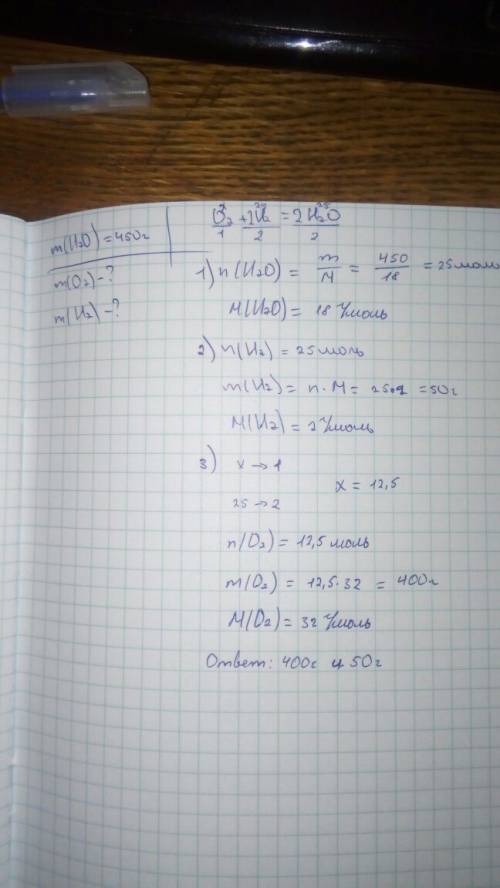 m(H2O) = 450г
m(O2) - ?
m(H2) - ?
x 25 25
O2 + 2H2 = 2H2O
1 2 2
1) n(H2O) = m/M = 450/18 = 25моль
M(H2O) = 18 г/моль
2) n(H2) = 25моль
m(H2) = n·M = 25·2 = 50г
M(H2) = 2 г/моль
3) x → 1
x = 12,5
25 → 2
n(O2) = 12,5 моль
m(O2) = 12,5·32 = 400г
M(O2) = 32 г/моль
Ответ: 400г и 50г